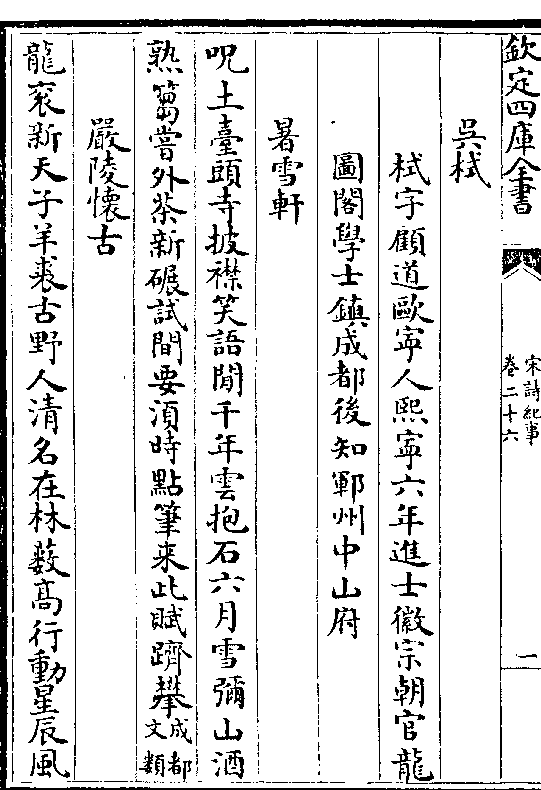 欽定四庫全書
宋詩紀事
卷二十六
一
吳栻
栻字顧道歐寧人熙寧六年進士徽宗朝官龍
圖閣學士鎮成都後知鄆州中山府
暑雪軒
呪土臺頭寺披襟笑語閒千年雲抱石六月雪彌山酒
熟篘嘗外茶新碾試間要須時點筆来此賦躋攀成都文類
嚴陵懷古
龍衮新天子羊裘古野人清名在林薮髙行動星辰風